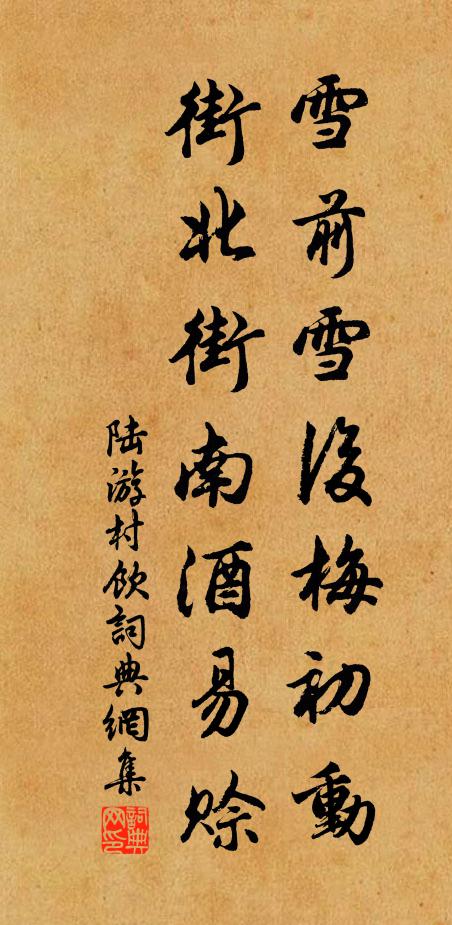 雪前雪後梅初動
街北街南酒易賒
陆游村飲詞典網集
詞典网印